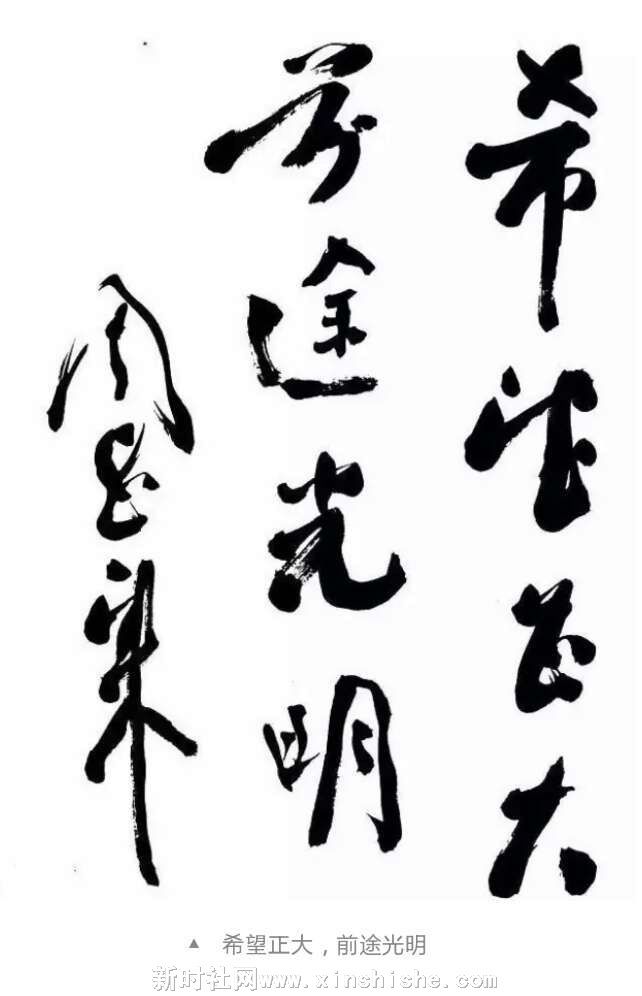 希望正大
前途光明
周恩来
▲ 希望正大，前途光明
新时社网www.xinshishe.com